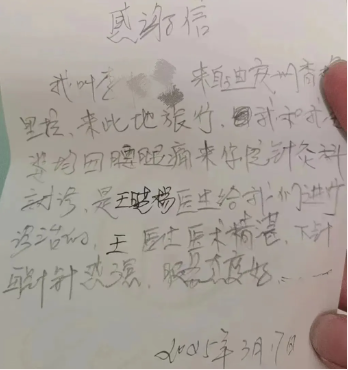 感谢信
我叫 来自迪庆州香格
里拉，来此地旅行，因我和我
均因腰腿痛来你院针灸科
就诊，是王晓杨医生给我们进行
诊治的，王医生医术精湛，下针
针感强，服务态度好，……
2025年3月17日